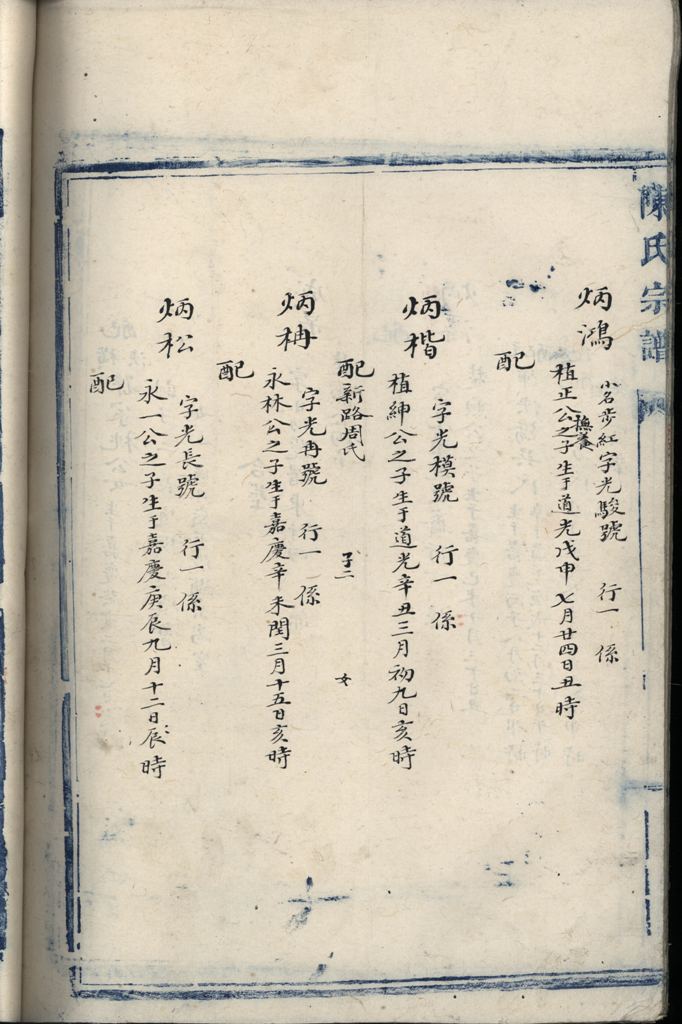 陳氏宗譜
炳鴻
小名步紅字光駿號 行一 係
植正公撫養之子生于道光戊申七月廿四日丑時
配
炳楷
字光模號 行一 係
植紳公之子生于道光辛丑三月初九日亥時
配新路周氏 子二 女
炳
字光再號 行一 係
永林公之子生于嘉慶辛未閏三月十五日亥時
配
炳松
字光長號 行一 係
永一公之子生于嘉慶庚辰九月十二日辰時
配